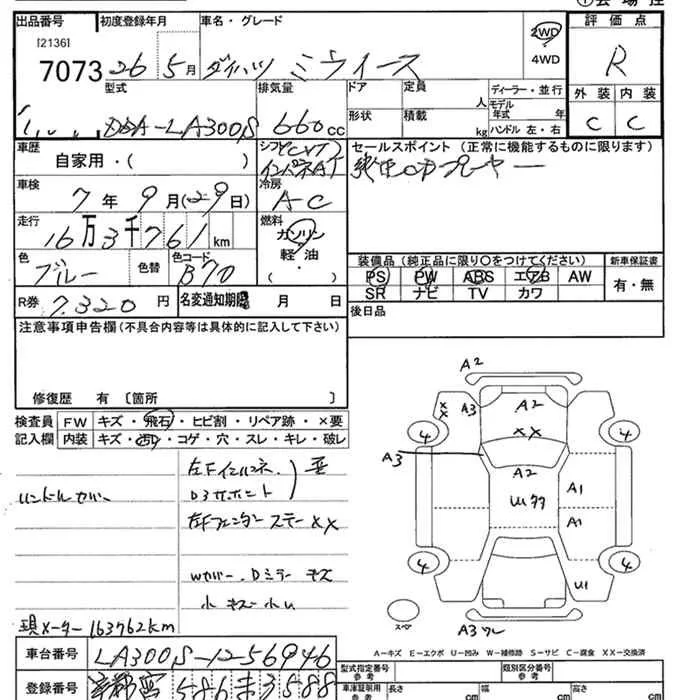 出品番号 初度登録年月 車名・グレード 2WD 4WD 評価点
[2136]
7073 26 5月 ダイハツ ミライース R
型式 排気量 ドア 定員 人 ディーラー・並行 外装 内装
DBA-LA300S 660cc 形状 積載 kg モデル年式 年 C C
ハンドル 左・右
車歴 自家用・( ) シフト CVT インパネAT セールスポイント (正常に機能するものに限ります)
CDプレーヤー
車検 7年9月(29日) 冷房 AC
走行 16万3千761km 燃料 ガソリン 軽油 ( )
装備品 (純正品に限り○をつけてください) 新車保証書
色 ブルー 色替 色コード B70
PS PW ABS エアB AW 有・無
SR ナビ TV カワ
R券 7,320円 名変通知期限 月 日 後日品
注意事項申告欄(不具合内容等は具体的に記入して下さい)
修復歴 有 〔箇所 〕
検査員記入欄 FW キズ・飛石・ヒビ割・リペア跡・×要
内装 キズ・汚れ・コゲ・穴・スレ・キレ・破レ
ハンドルカバー
左Fインサイドパネル
左Fフェンダーステー XX
Wカバー、Dミラーキズ
小キズ小U
現メーター163762km
A2
XX A3 A2
4 XX 4
A3 A2
A1
A1
4 4
U1
スペア
A3
A-キズ E-エクボ U-凹み W-補修跡 S-サビ C-腐食 XX-交換済
車台番号 LA300S-1256946
登録番号 586 3588
型式指定番号 参考 類別区分番号 参考
車庫証明用 参考 長さ cm 幅 cm 高さ cm